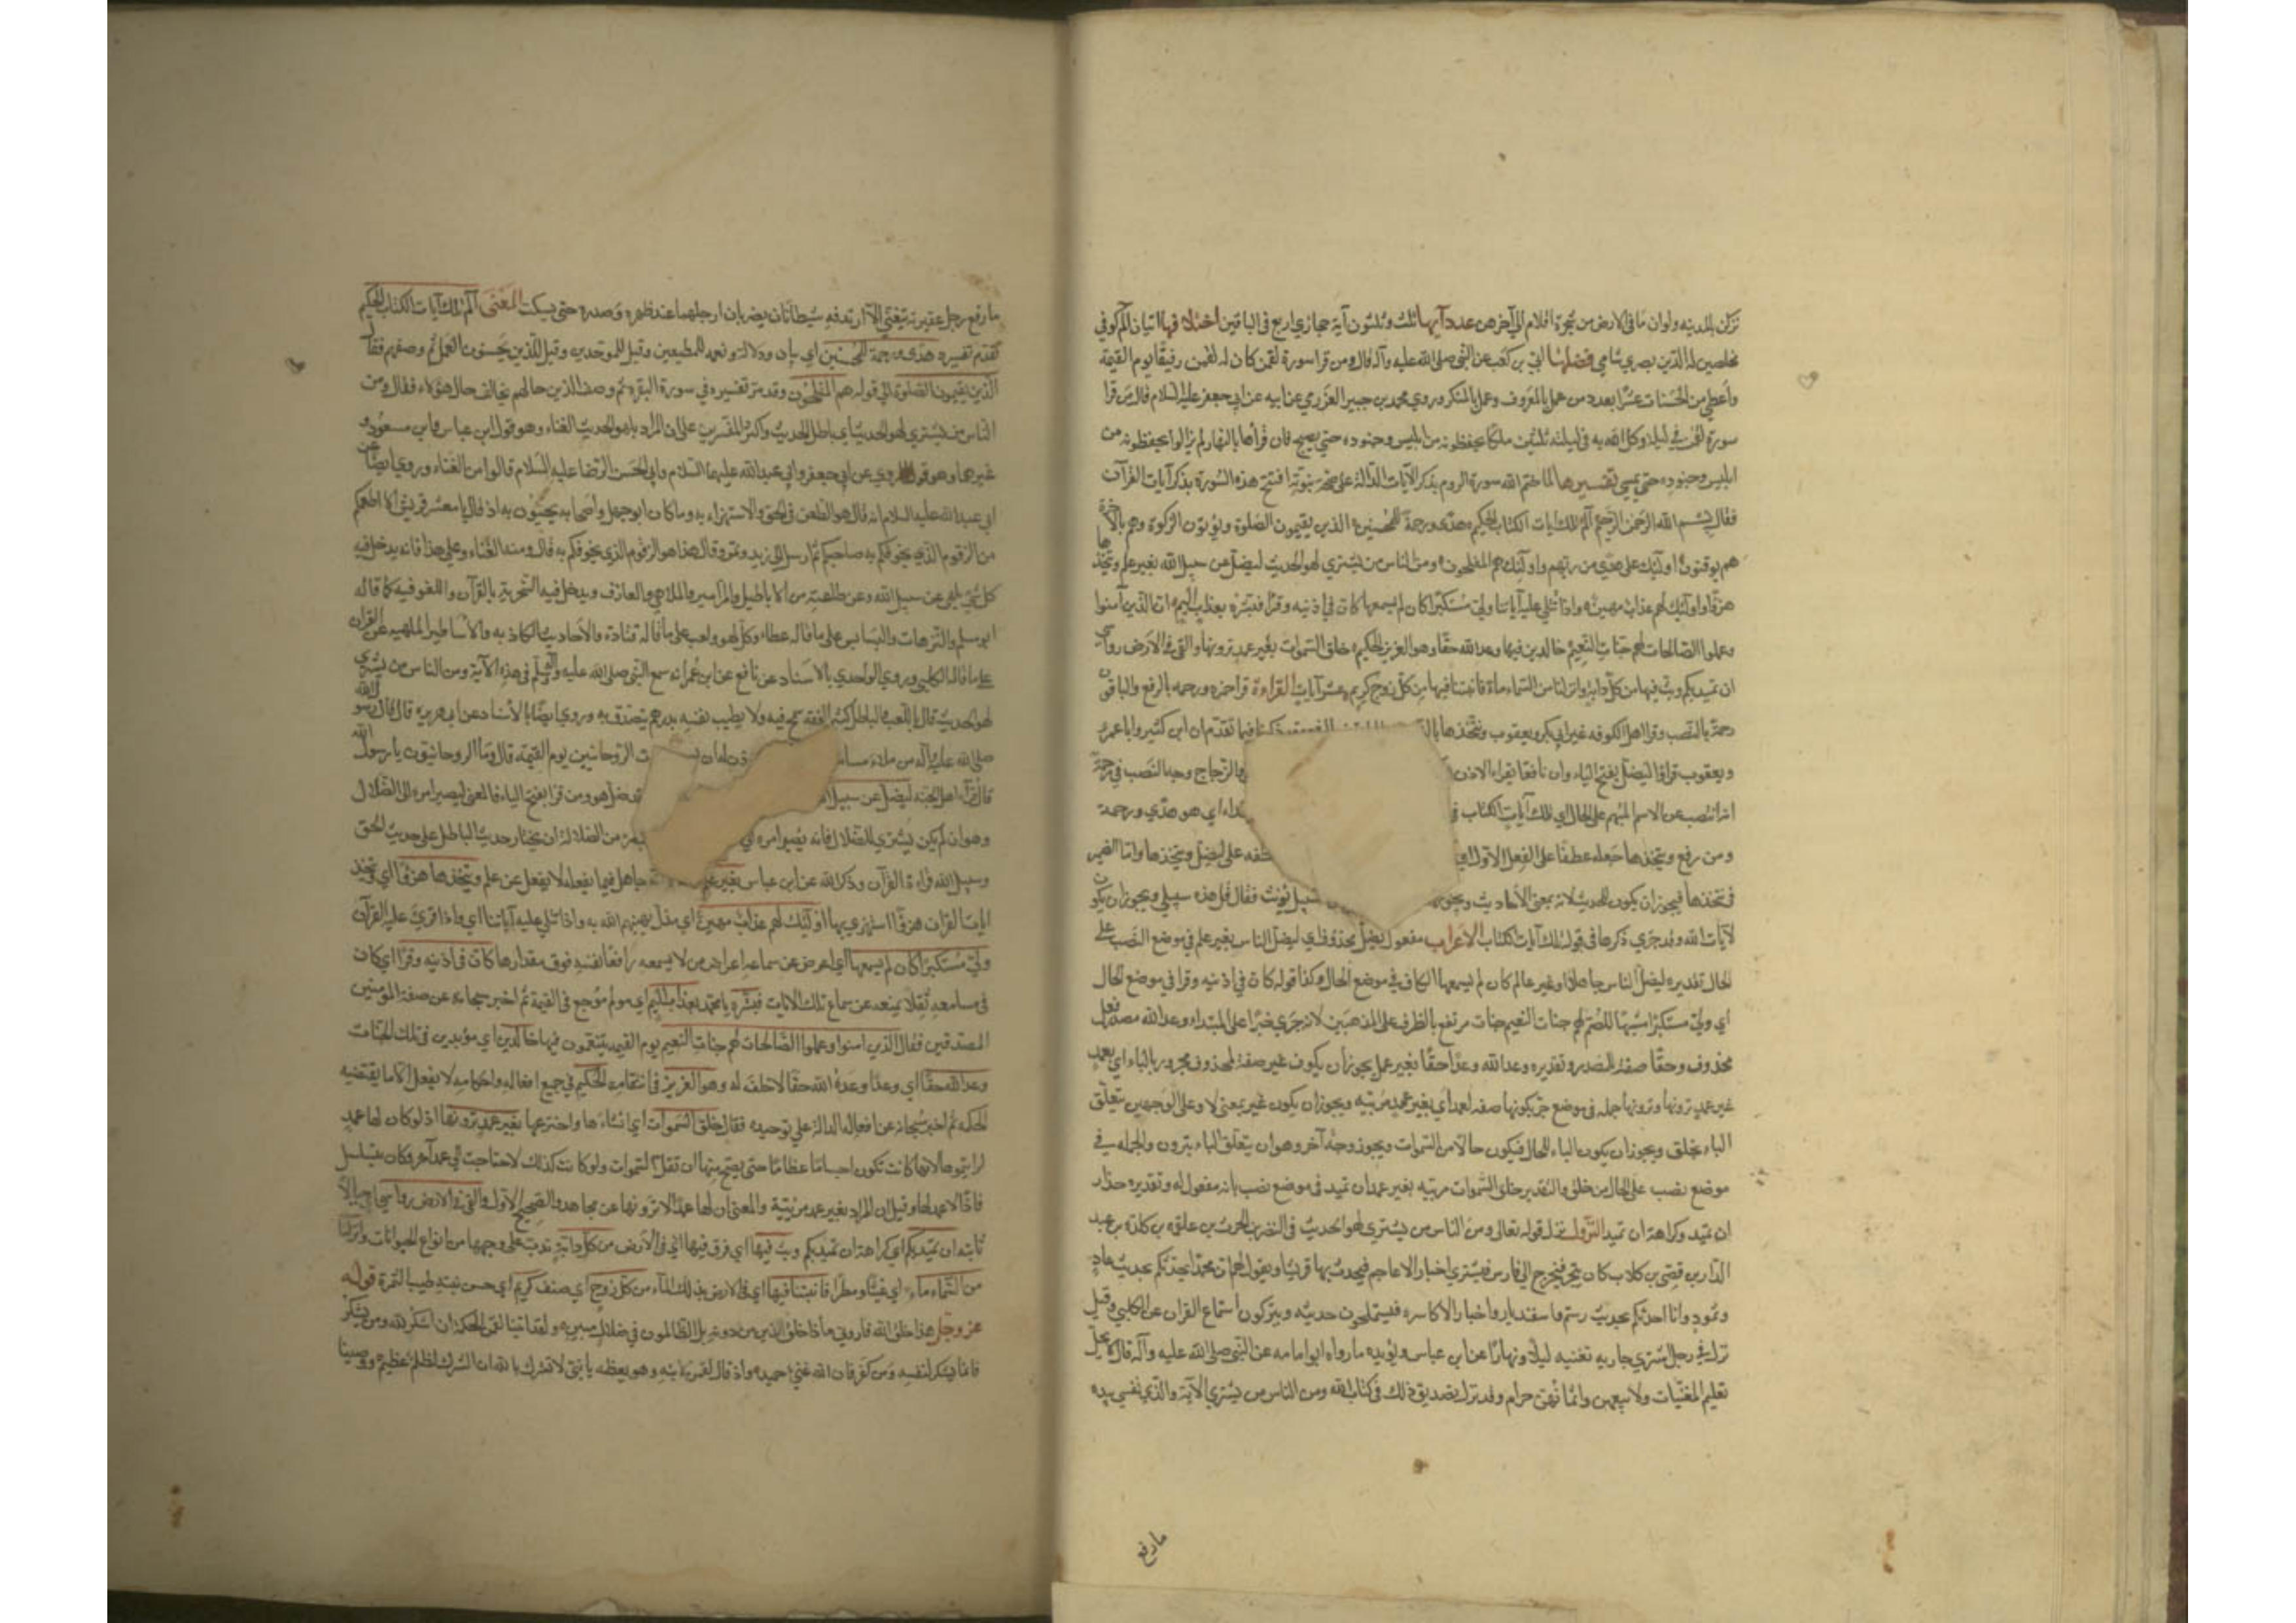 نزلن بالمدينه ولو ان ما فى الارض من شجرة اقلام الى آخرهن عدد آيها ثلث وثلثون آية حجازي اربع فى الباقين اختلافها اثنان الم كوفي
مخلصين له الدين بصري شامي فضلها ابي بن كعب عن النبي صلى الله عليه وآله قال ومن قرا سورة لقمن كان له لقمن رفيقا يوم القيمة
واعطي من الحسنات عشرا بعدد من عمل بالمعروف وعمل بالمنكر وروي محمد بن جبير العزرمي عن ابيه عن ابي جعفر عليه السلام قال من قرا
سورة لقمن في ليلة وكل الله به فى ليلته ثلثين ملكا يحفظونه من ابليس وجنوده حتى يصبح فان قرأها بالنهار لم يزالوا يحفظونه من
ابليس وجنوده حتى يمسي تفسيرها لما ختم الله سورة الروم بذكر الآيات الدالة على صحة نبوته افتتح هذه السورة بذكر آيات القرآن
فقال بسم الله الرحمن الرحيم الم تلك ايات الكتاب الحكيم هدى ورحمة للمحسنين الذين يقيمون الصلوة ويؤتون الزكوة وهم بالآخرة
هم يوقنون اولئك على هدى من ربهم واولئك هم المفلحون ومن الناس من يشتري لهو الحديث ليضل عن سبيل الله بغير علم ويتخذها
هزوا اولئك لهم عذاب مهين واذا تتلى عليه آياتنا ولى مستكبرا كان لم يسمعها كان في اذنيه وقرا فبشره بعذاب اليم ان الذين آمنوا
وعملوا الصالحات لهم جنات النعيم خالدين فيها وعد الله حقا وهو العزيز الحكيم خلق السموات بغير عمد ترونها والقى فى الارض رواسي
ان تميد بكم وبث فيها من كل دابة وانزلنا من السماء ماء فانبتنا فيها من كل زوج كريم عشر آيات القراءة قرا حمزه ورحمه بالرفع والباقون
رحمة بالنصب وقرا اهل الكوفه غير ابي بكر ويعقوب ويتخذها ذكرنا فيما تقدم ان ابن كثير وابا عمرو
ويعقوب قراوا ليضل بفتح الياء وان نافعا يقراء الاذن والزجاج وجه النصب في رحمة
انه انتصب عن الاسم المبهم على الحال اي تلك آيات الكتاب اي هو هدى ورحمة
ومن رفع ويتخذها جعله عطفا على الفعل الاول على ليضل ويتخذها واما الضمير
فى يتخذها فيجوز ان يكون للحديث لانه بمعنى الاحاديث ويجوز السبيل تؤنث فقال قل هذه سبيلي ويجوز ان يكون
لآيات الله وقد جري ذكرها فى قوله تلك آيات الكتاب الاعراب مفعول يضل محذوف اي ليضل الناس بغير علم في موضع النصب على
الحال تقديره ليضل الناس جاهلا او غير عالم كان لم يسمعها الكاف في موضع الحال وكذا قوله كان في اذنيه وقرا في موضع الحال
اي ولى مستكبرا مشبها للصم لهم جنات النعيم جنات مرتفع بالظرف على المذهبين لانه جري خبرا على المبتداء وعد الله مصدر فعل
محذوف وحقا صفة المصدر وتقديره وعد الله وعدا حقا بغير عمد يجوز ان يكون غير صفة لمحذوف مجرور بالباء اي بعمد
غير عمد ترونها وترونها جمله فى موضع جر بكونها صفه لعمد اي بغير عمد مرئيه ويجوز ان يكون غير بمعنى لا وعلى الوجهين يتعلق
الباء بخلق ويجوز ان يكون الباء للحال فيكون حالا من السموات ويجوز وجه آخر وهو ان يتعلق الباء بترون والجمله في
موضع نصب على الحال من خلق والتقدير خلق السموات مرئيه بغير عمد ان تميد فى موضع نصب بانه مفعول له وتقديره حذار
ان تميد وكراهة ان تميد النزول نزل قوله تعالى ومن الناس من يشتري لهو الحديث فى النضر بن الحرث بن علقمه بن كلدة بن عبد
الدار بن قصي بن كلاب كان يتجر فيخرج الى فارس فيشتري اخبار الاعاجم فيحدث بها قريشا ويقول لهم ان محمدا يحدثكم بحديث عاد
وثمود وانا احدثكم بحديث رستم واسفنديار واخبار الاكاسره فيستملحون حديثه ويتركون استماع القران عن الكلبي وقيل
نزل في رجل اشتري جاريه تغنيه ليلا ونهارا عن ابن عباس ويؤيده ما رواه ابو امامه عن النبي صلى الله عليه وآله قال لا يحل
تعليم المغنيات ولا بيعهن واثمانهن حرام وقد نزل تصديق ذلك فى كتاب الله ومن الناس من يشتري الآية والذي نفسي بيده
ما رفع
ما رفع رجل عقيرته يتغنى الا ارتدفه شيطانان يضربان ارجلهما عند ظهره وصدره حتى يسكت المعنى الم تلك آيات الكتاب الحكيم
تقدم تفسيره هدى ورحمة للمحسنين اي بيان ودلالة ونعمه للمطيعين وقيل للموحدين وقيل للذين يحسنون العمل ثم وصفهم فقال
الذين يقيمون الصلوة الى قوله هم المفلحون وقد مر تفسيره في سورة البقره ثم وصف الذين حالهم يخالف حال هؤلاء فقال ومن
الناس من يشتري لهو الحديث اي باطل الحديث واكثر المفسرين على ان المراد بلهو الحديث الغناء وهو قول ابن عباس وابن مسعود و
غيرهما وهو المروي عن ابي جعفر وابي عبد الله عليهما السلام وابي الحسن الرضا عليه السلام قالوا من الغناء وروي ايضا عن
ابي عبد الله عليه السلام انه قال هو الطعن فى الحق والاستهزاء به وما كان ابو جهل واصحابه يجيئون به اذ قال يا معشر قريش الا اطعمكم
من الزقوم الذي يخوفكم به صاحبكم ثم ارسل الى زبد وتمر وقال هذا هو الزقوم الذي يخوفكم به قال ومنه الغناء وعلى هذا فانه يدخل فيه
كل شيء يلهي عن سبيل الله وعن طاعته من الاباطيل والمزامير والملاهي والمعازف ويدخل فيه السخرية بالقرآن واللغو فيه كما قاله
ابو مسلم والترهات والبسابس على ما قاله عطاء وكل لهو ولعب على ما قاله قتادة والاحاديث الكاذبه والاساطير الملهيه عن القران
على ما قاله الكلبي وروي الواحدي بالاسناد عن نافع عن ابن عمر انه سمع النبي صلى الله عليه وسلم في هذه الآية ومن الناس من يشتري
لهو الحديث قال باللعب والباطل كثير النفقه سمح فيه ولا يطيب نفسه بدرهم يتصدق به وروي ايضا بالاسناد عن ابي هريره قال قال رسول الله
صلى الله عليه وآله من ملاء مسامعه الروحانيين يوم القيمة قال وما الروحانيون يا رسول الله
قال قراء اهل الجنه ليضل عن سبيل الله ضل هو ومن قرا بفتح الياء فالمعنى ليصير امره الى الضلال
وهو ان لم يكن يشتري للضلال فانه يصير امره من الضلالة ان يختار حديث الباطل على حديث الحق
وسبيل الله قراءة القرآن وذكر الله عن ابن عباس بغير علم جاهل فيما يفعله لا يفعل عن علم ويتخذها هزوا اي ويتخذ
ايات القران هزوا استهزي بها اولئك لهم عذاب مهين اي مذل يهينهم الله به واذا تتلى عليه آياتنا اي واذا قرئ عليه القرآن
ولى مستكبرا كان لم يسمعها اي اعرض عن سماعه اعراض من لا يسمعه رافعا نفسه فوق مقدارها كان فى اذنيه وقرا اي كان
فى مسامعه ثقلا يمنعه عن سماع تلك الايات فبشره يا محمد بعذاب اليم اي مولم موجع فى القيمة ثم اخبر سبحانه عن صفة المؤمنين
المصدقين فقال الذين امنوا وعملوا الصالحات لهم جنات النعيم يوم القيمه يتنعمون فيها خالدين اي مؤبدين فى تلك الجنات
وعد الله حقا اي وعدا وعده الله حقا لا خلف له وهو العزيز فى انتقامه الحكيم في جميع افعاله واحكامه لا يفعل الا ما يقتضيه
الحكمه ثم اخبر سبحانه عن افعاله الدالة على توحيده فقال خلق السموات اي انشاءها واخترعها بغير عمد ترونها اذ لو كان لها عمد
لرايتموها لانها كانت تكون اجساما عظاما حتى يصح منها ان تقل السموات ولو كانت كذلك لاحتاجت الى عمد آخر فكان يتسلسل
فاذا لا عمد لها وقيل ان المراد بغير عمد مرئية والمعنى ان لها عمدا لا ترونها عن مجاهد والصحيح الاول والقى فى الارض رواسي اي جبالا
ثابته ان تميد بكم اي كراهة ان تميد بكم وبث فيها اي فرق فيها اي فى الارض من كل دابة تدب على وجهها من انواع الحيوانات وانزلنا
من السماء ماء اي غيثا ومطرا فانبتنا فيها اي فى الارض بذلك الماء من كل زوج اي صنف كريم اي حسن نبته طيب الثمرة قوله
عز وجل هذا خلق الله فاروني ماذا خلق الذين من دونه بل الظالمون في ضلال مبين ولقد اتينا لقمن الحكمة ان اشكر لله ومن يشكر
فانما يشكر لنفسه ومن كفر فان الله غني حميد واذ قال لقمن لابنه وهو يعظه يا بني لا تشرك بالله ان الشرك لظلم عظيم ووصينا